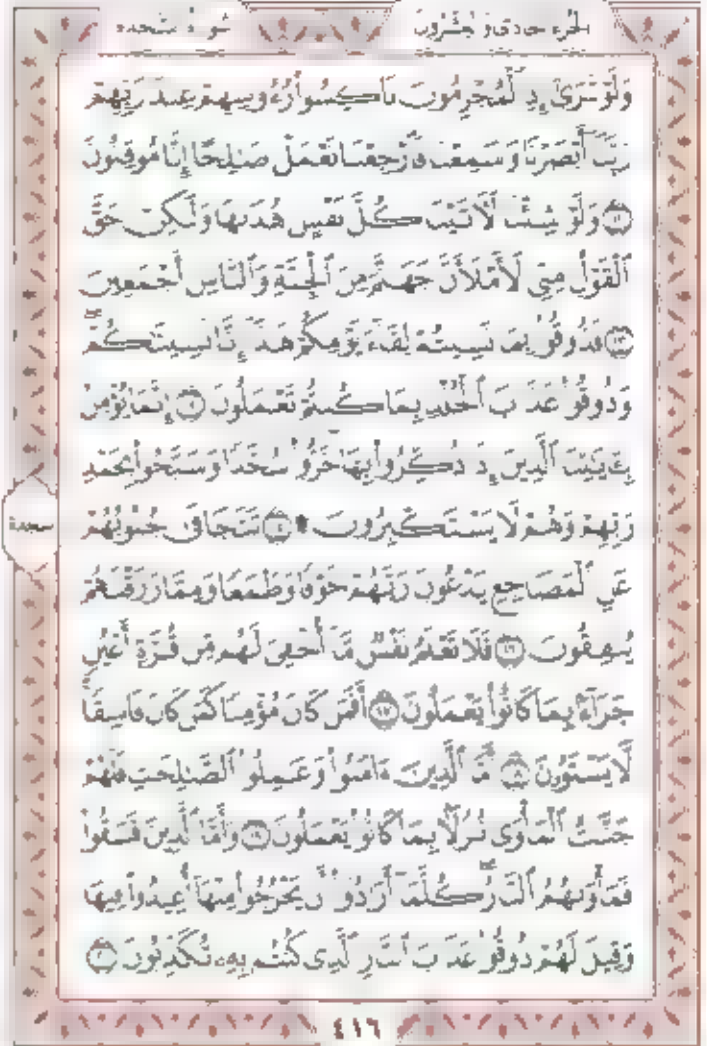 الجزء الحادي والعشرون سورة السجدة
وَلَوْ تَرَىٰ إِذِ ٱلْمُجْرِمُونَ نَاكِسُوا۟ رُءُوسِهِمْ عِندَ رَبِّهِمْ
رَبَّنَآ أَبْصَرْنَا وَسَمِعْنَا فَٱرْجِعْنَا نَعْمَلْ صَٰلِحًا إِنَّا مُوقِنُونَ
١٢ وَلَوْ شِئْنَا لَءَاتَيْنَا كُلَّ نَفْسٍ هُدَىٰهَا وَلَٰكِنْ حَقَّ
ٱلْقَوْلُ مِنِّى لَأَمْلَأَنَّ جَهَنَّمَ مِنَ ٱلْجِنَّةِ وَٱلنَّاسِ أَجْمَعِينَ
١٣ فَذُوقُوا۟ بِمَا نَسِيتُمْ لِقَآءَ يَوْمِكُمْ هَٰذَآ إِنَّا نَسِينَٰكُمْ
وَذُوقُوا۟ عَذَابَ ٱلْخُلْدِ بِمَا كُنتُمْ تَعْمَلُونَ ١٤ إِنَّمَا يُؤْمِنُ
بِـَٔايَٰتِنَا ٱلَّذِينَ إِذَا ذُكِّرُوا۟ بِهَا خَرُّوا۟ سُجَّدًا وَسَبَّحُوا۟ بِحَمْدِ
رَبِّهِمْ وَهُمْ لَا يَسْتَكْبِرُونَ ۩ ١٥ تَتَجَافَىٰ جُنُوبُهُمْ
سجدة
عَنِ ٱلْمَضَاجِعِ يَدْعُونَ رَبَّهُمْ خَوْفًا وَطَمَعًا وَمِمَّا رَزَقْنَٰهُمْ
يُنفِقُونَ ١٦ فَلَا تَعْلَمُ نَفْسٌ مَّآ أُخْفِىَ لَهُم مِّن قُرَّةِ أَعْيُنٍ
جَزَآءًۢ بِمَا كَانُوا۟ يَعْمَلُونَ ١٧ أَفَمَن كَانَ مُؤْمِنًا كَمَن كَانَ فَاسِقًا
لَّا يَسْتَوُۥنَ ١٨ أَمَّا ٱلَّذِينَ ءَامَنُوا۟ وَعَمِلُوا۟ ٱلصَّٰلِحَٰتِ فَلَهُمْ
جَنَّٰتُ ٱلْمَأْوَىٰ نُزُلًۢا بِمَا كَانُوا۟ يَعْمَلُونَ ١٩ وَأَمَّا ٱلَّذِينَ فَسَقُوا۟
فَمَأْوَىٰهُمُ ٱلنَّارُ كُلَّمَآ أَرَادُوٓا۟ أَن يَخْرُجُوا۟ مِنْهَآ أُعِيدُوا۟ فِيهَا
وَقِيلَ لَهُمْ ذُوقُوا۟ عَذَابَ ٱلنَّارِ ٱلَّذِى كُنتُم بِهِۦ تُكَذِّبُونَ ٢٠
٤١٦